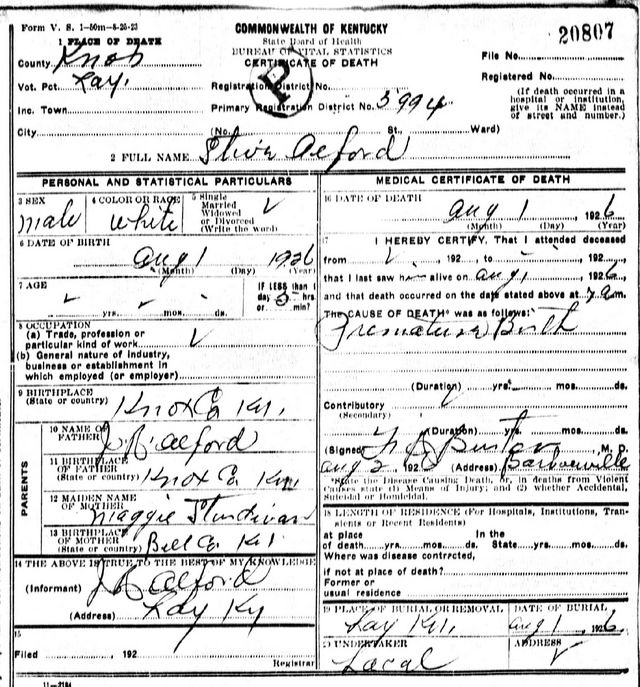 Form V. S. 1-50m-8-25-23
COMMONWEALTH OF KENTUCKY
State Board of Health
BUREAU OF VITAL STATISTICS
CERTIFICATE OF DEATH
20807
1 PLACE OF DEATH
County Knox
Vot. Pct. Lay.
Inc. Town
City
P
Registration District No.
Primary Registration District No. 5994
(No. St., Ward)
File No.
Registered No.
(If death occurred in a
hospital or institution,
give its NAME instead
of street and number.)
2 FULL NAME Alford
PERSONAL AND STATISTICAL PARTICULARS
3 SEX
male
4 COLOR OR RACE
white
5 Single
Married
Widowed
or Divorced
(Write the word)
6 DATE OF BIRTH
aug 1 1926
(Month) (Day) (Year)
7 AGE
yrs. mos. ds.
IF LESS than 1
day hrs.
or min?
8 OCCUPATION
(a) Trade, profession or
particular kind of work
(b) General nature of industry,
business or establishment in
which employed (or employer)
9 BIRTHPLACE
(State or country) Knox Co Ky.
PARENTS
10 NAME OF
FATHER Alford
11 BIRTHPLACE
OF FATHER
(State or country) Knox Co Ky
12 MAIDEN NAME
OF MOTHER Maggie
13 BIRTHPLACE
OF MOTHER
(State or country) Bell Co Ky.
14 THE ABOVE IS TRUE TO THE BEST OF MY KNOWLEDGE
(Informant) Alford
(Address) Lay Ky
15
Filed , 192
Registrar
11-2184
MEDICAL CERTIFICATE OF DEATH
16 DATE OF DEATH
aug 1, 1926
(Month) (Day) (Year)
17 I HEREBY CERTIFY, That I attended deceased
from , 192 , to , 192 ,
that I last saw him alive on aug 1, 1926,
and that death occurred on the date stated above at 7 a m.
The CAUSE OF DEATH* was as follows:
Premature Birth
(Duration) yrs. mos. ds.
Contributory
(Secondary)
(Duration) yrs. mos. ds.
(Signed) M. D.
aug 2 1926 (Address) Barbourville
*State the Disease Causing Death, or, in deaths from Violent
Causes state (1) Means of Injury; and (2) whether Accidental,
Suicidal or Homicidal.
18 LENGTH OF RESIDENCE (For Hospitals, Institutions, Transients or Recent Residents)
at place In the
of death yrs. mos. ds. State yrs. mos. ds.
Where was disease contracted,
if not at place of death?
Former or
usual residence
19 PLACE OF BURIAL OR REMOVAL
Lay Ky.
DATE OF BURIAL
aug 1, 1926
20 UNDERTAKER
Local
ADDRESS